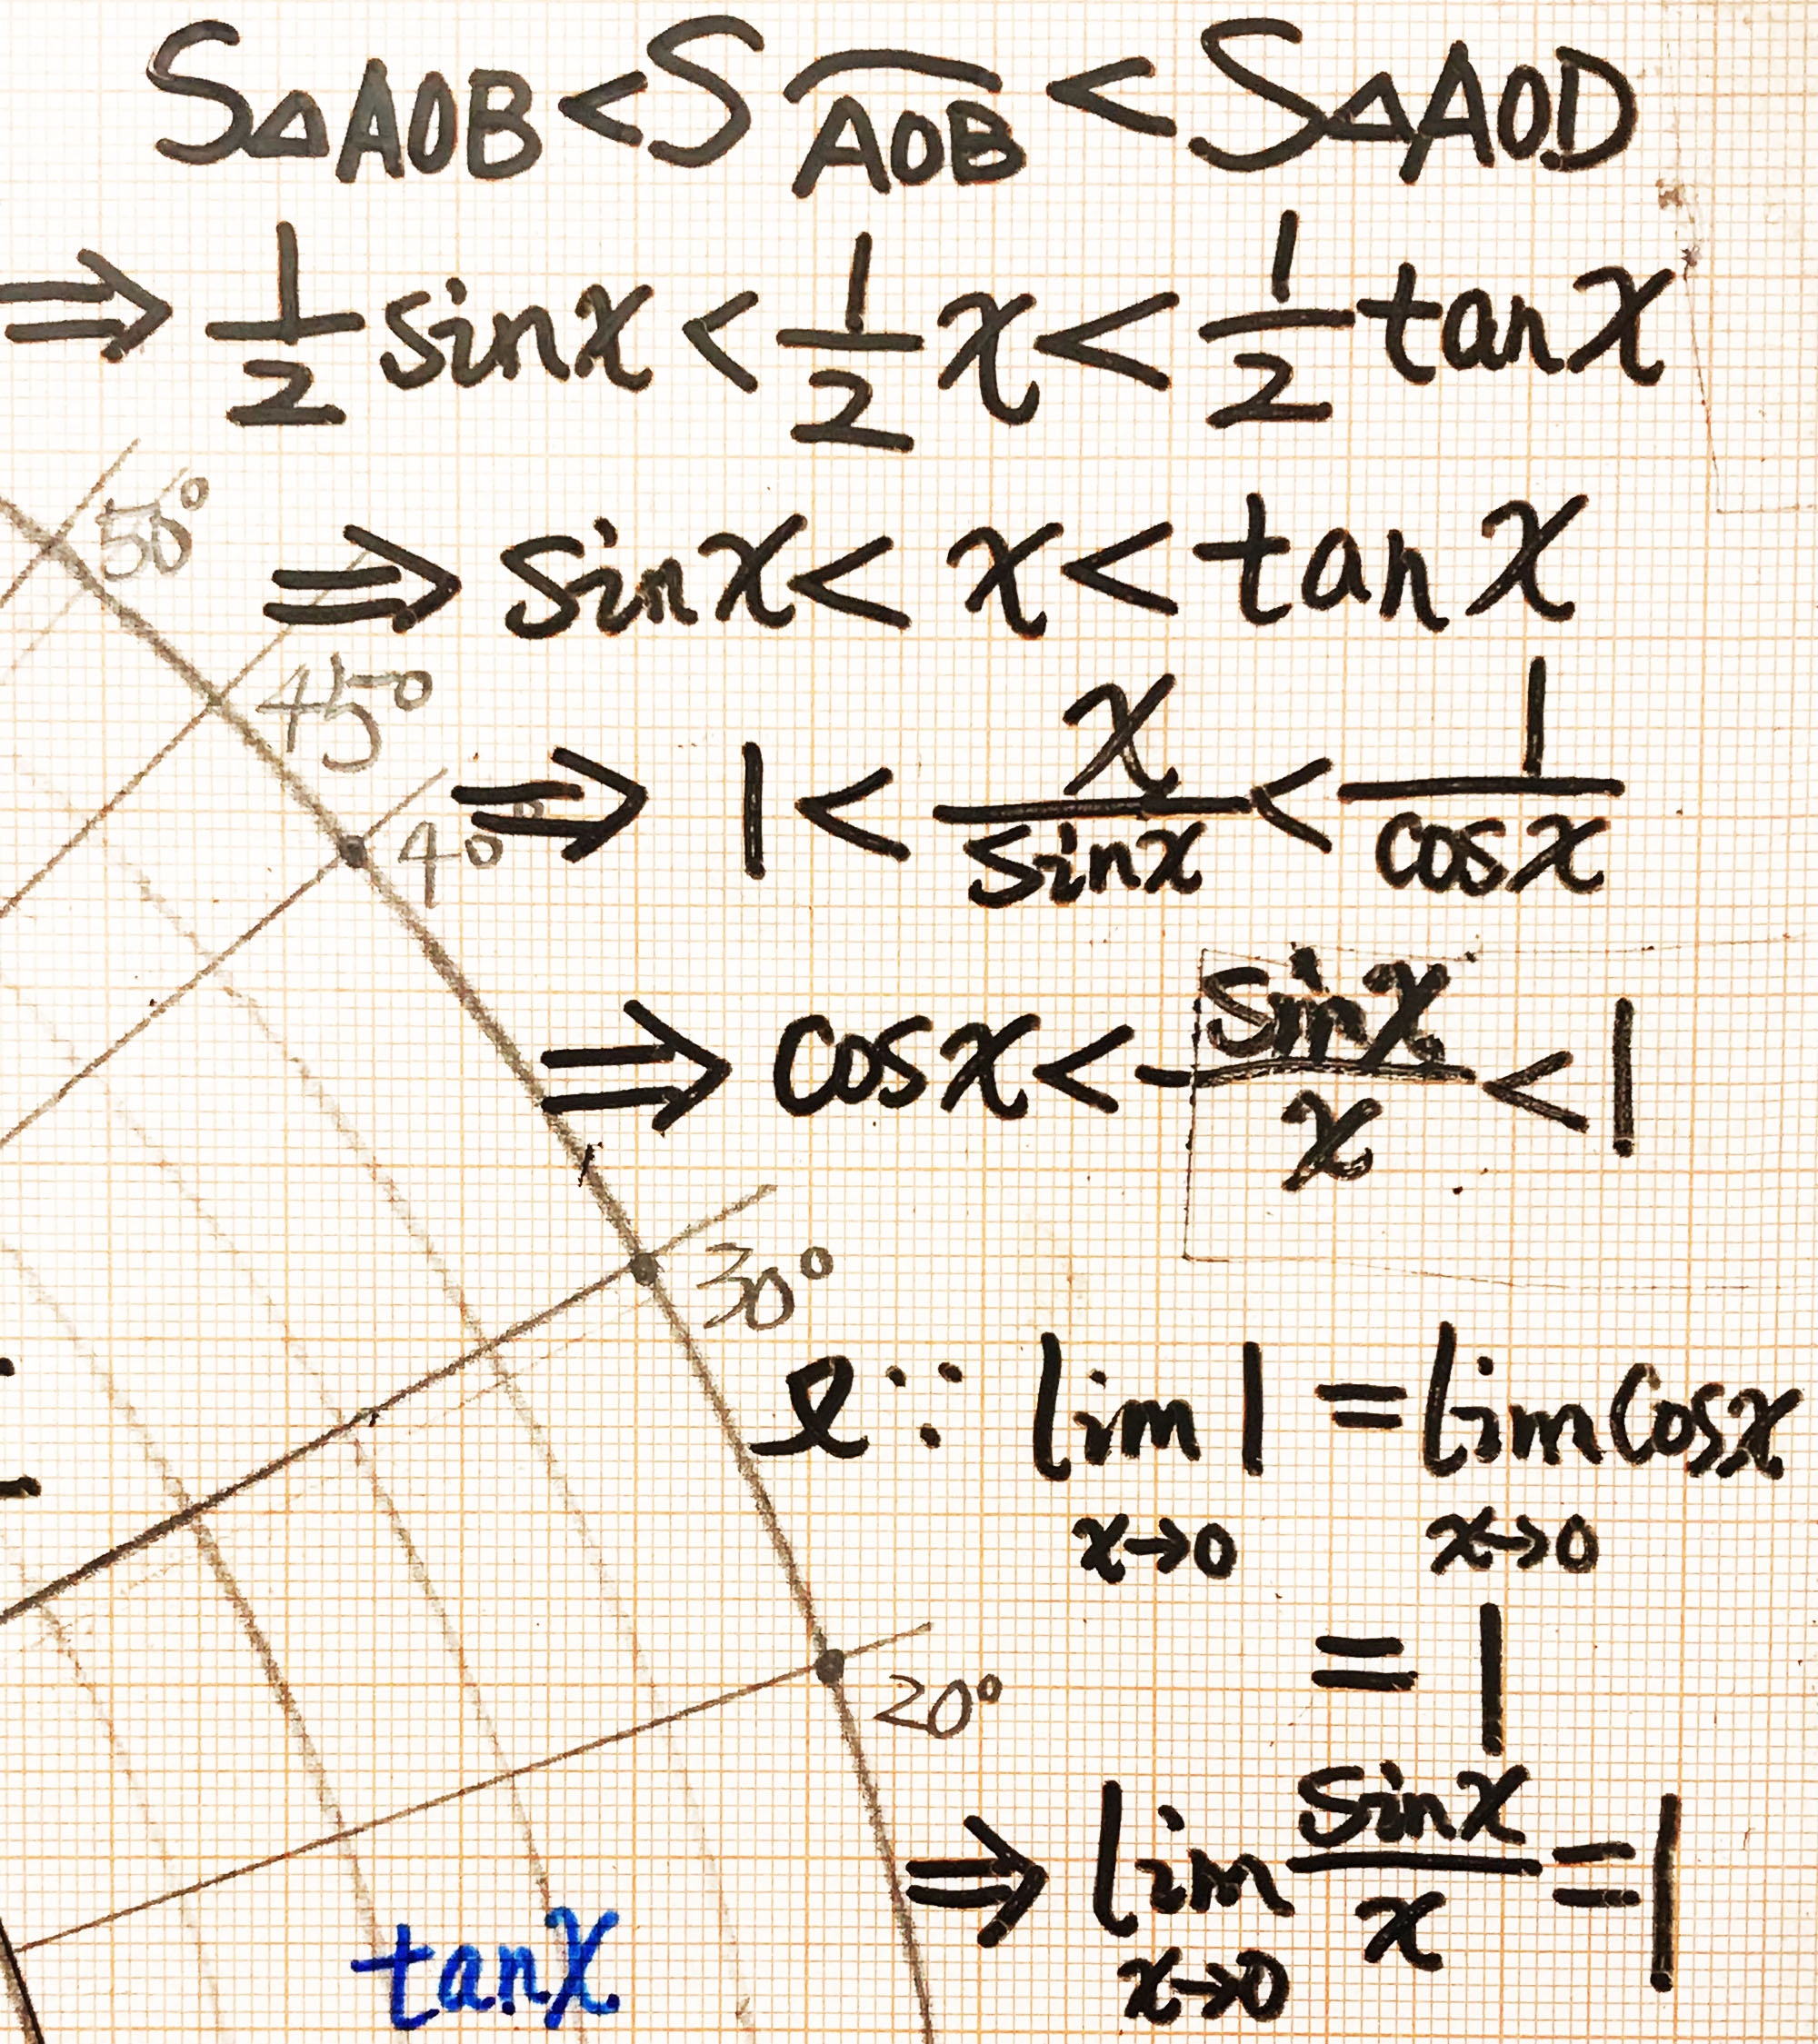 S△AOB < S⌒AOB < S△AOD
⇒ 1/2 sinx < 1/2 x < 1/2 tanx
50°
⇒ sinx < x < tanx
45°
⇒ 1 < x/sinx < 1/cosx
40°
⇒ cosx < sinx/x < 1
30°
∵ lim x→0 1 = lim x→0 cosx
= 1
20°
⇒ lim x→0 sinx/x = 1
tanx